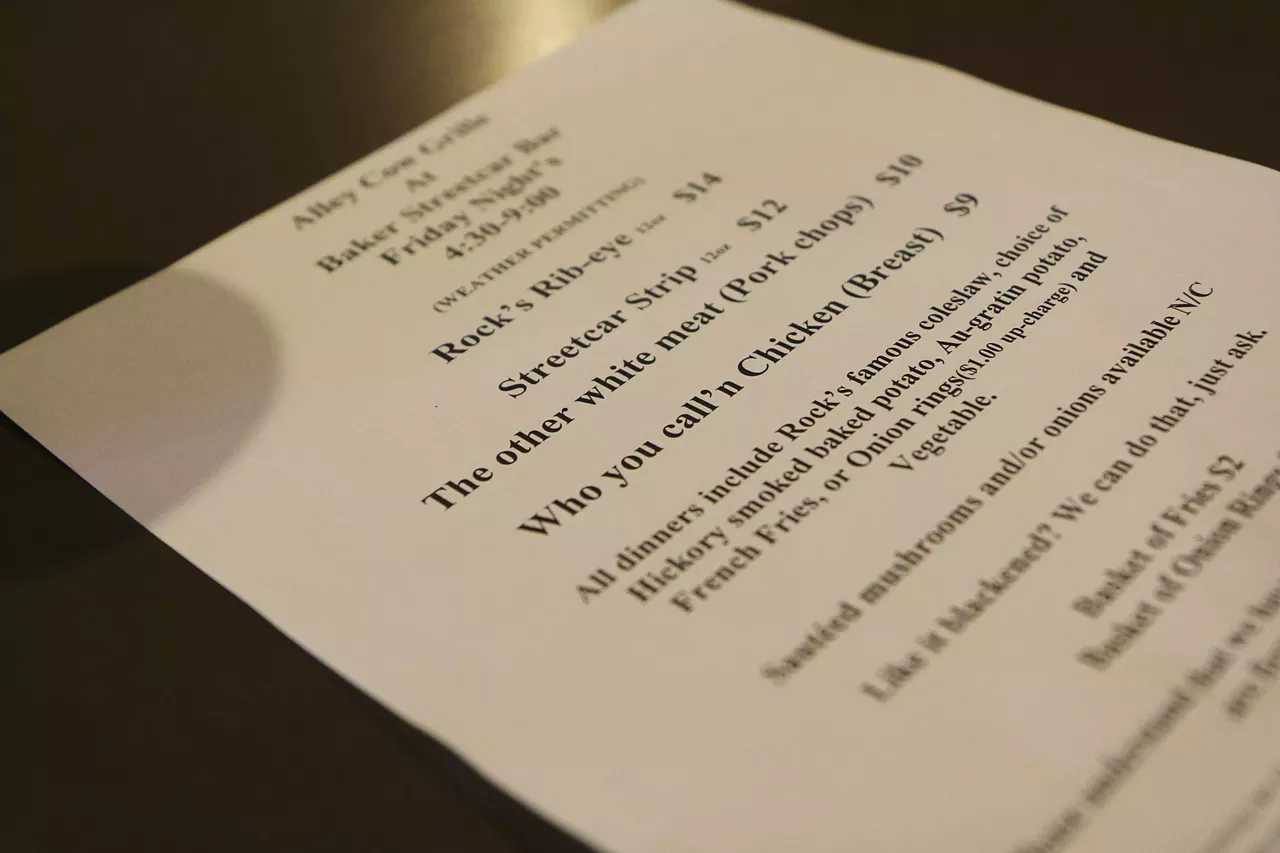 Alley Cow Grille
At
Baker Streetcar Bar
Friday Night's
4:30-9:00
(WEATHER PERMITTING)
Rock's Rib-eye 13oz $14
Streetcar Strip 12oz $12
The other white meat (Pork chops) $10
Who you call'n Chicken (Breast) $9
All dinners include Rock's famous coleslaw, choice of
Hickory smoked baked potato, Au-gratin potato,
French Fries, or Onion rings($1.00 up-charge) and
Vegetable.
Sautéed mushrooms and/or onions available N/C
Like it blackened? We can do that, just ask.
Basket of Fries $2
Basket of Onion Rings
understand that we
are